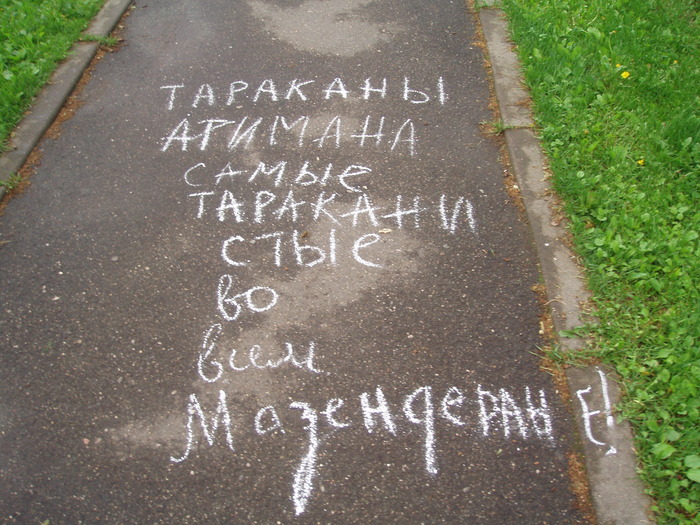 ТАРАКАНЫ
АРИМАНА
САМЫе
ТАРАКАНИ
СТЫе
во
всем
МазендеРАНЕ!